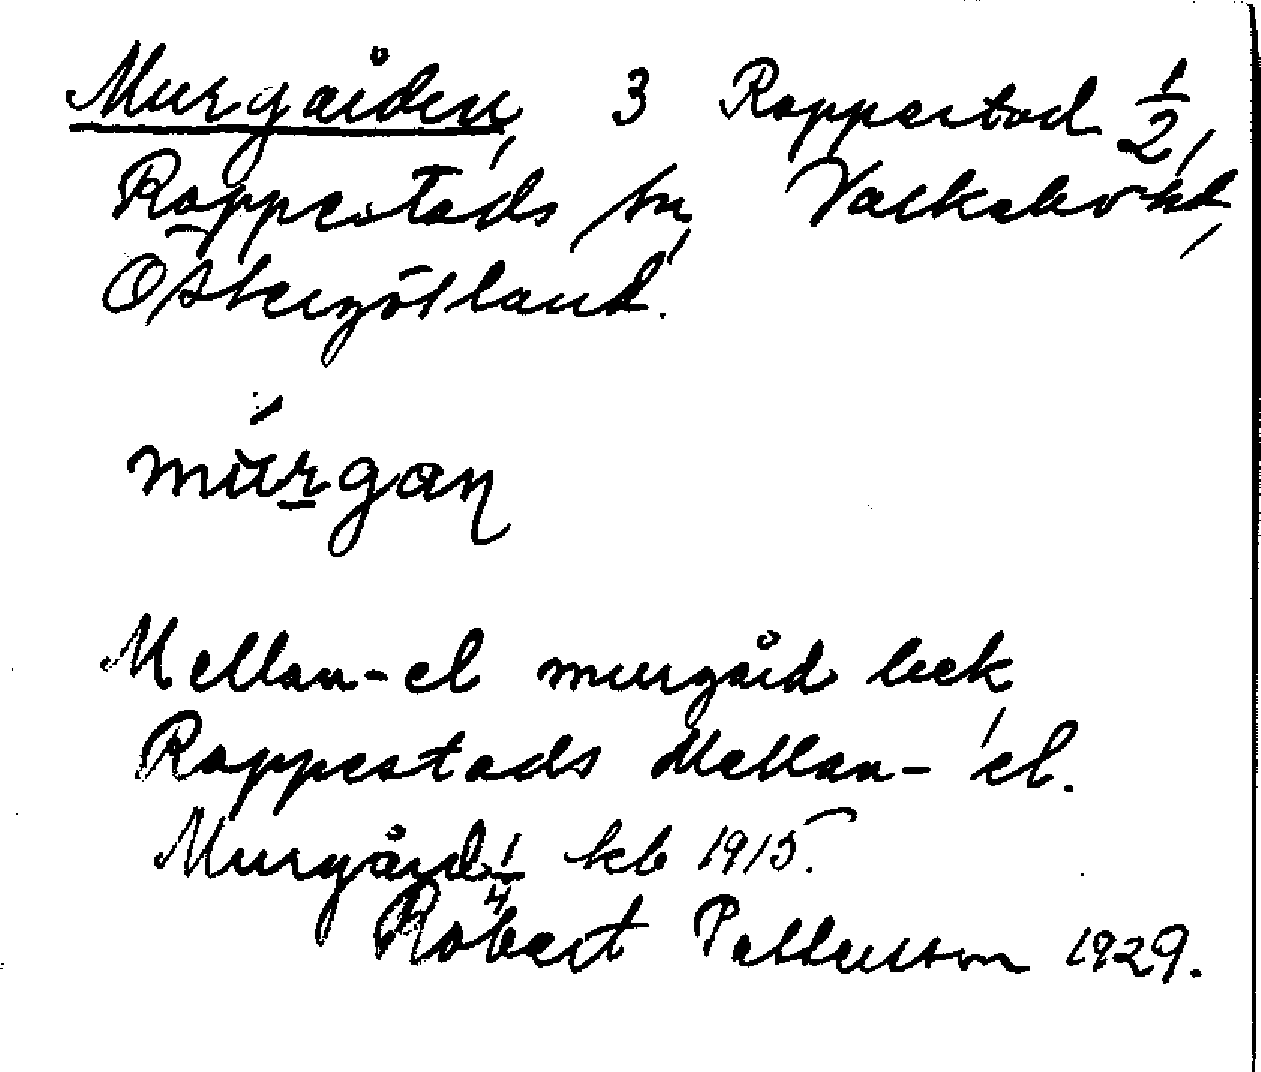 Murgården, 3 Rappestad 1/2,
Rappestads sn, Valkebo hd,
Östergötland.
mu̇rgan
Mellan- el murgård lek,
Rappestads Mellan- el.
Murgård 1/4 kb 1915.
Robert Pettersson 1929.